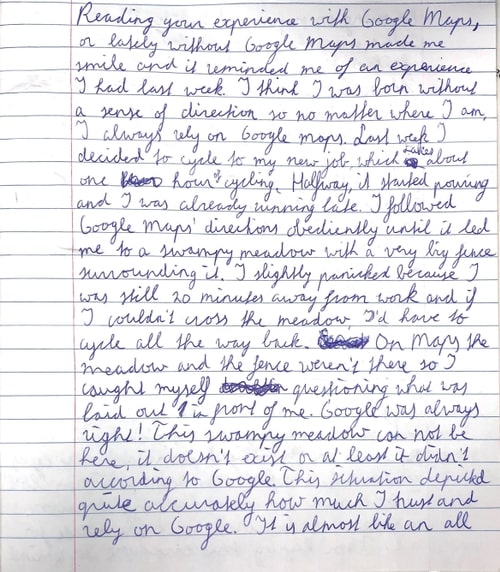 Reading your experience with Google Maps,
or lately without Google Maps made me
smile and it reminded me of an experience
I had last week. I think I was born without
a sense of direction so no matter where I am,
I always rely on Google maps. Last week I
decided to cycle to my new job which takes about
one hour of cycling. Halfway, it started pouring
and I was already running late. I followed
Google Maps' directions obediently until it led
me to a swampy meadow with a very big fence
surrounding it. I slightly panicked because I
was still 20 minutes away from work and if
I couldn't cross the meadow I'd have to
cycle all the way back. On Maps the
meadow and the fence weren't there so I
caught myself questioning what was
laid out in front of me. Google was always
right! This swampy meadow can not be
here, it doesn't exist or at least it didn't
according to Google. This situation depicted
quite accurately how much I trust and
rely on Google. It is almost like an all